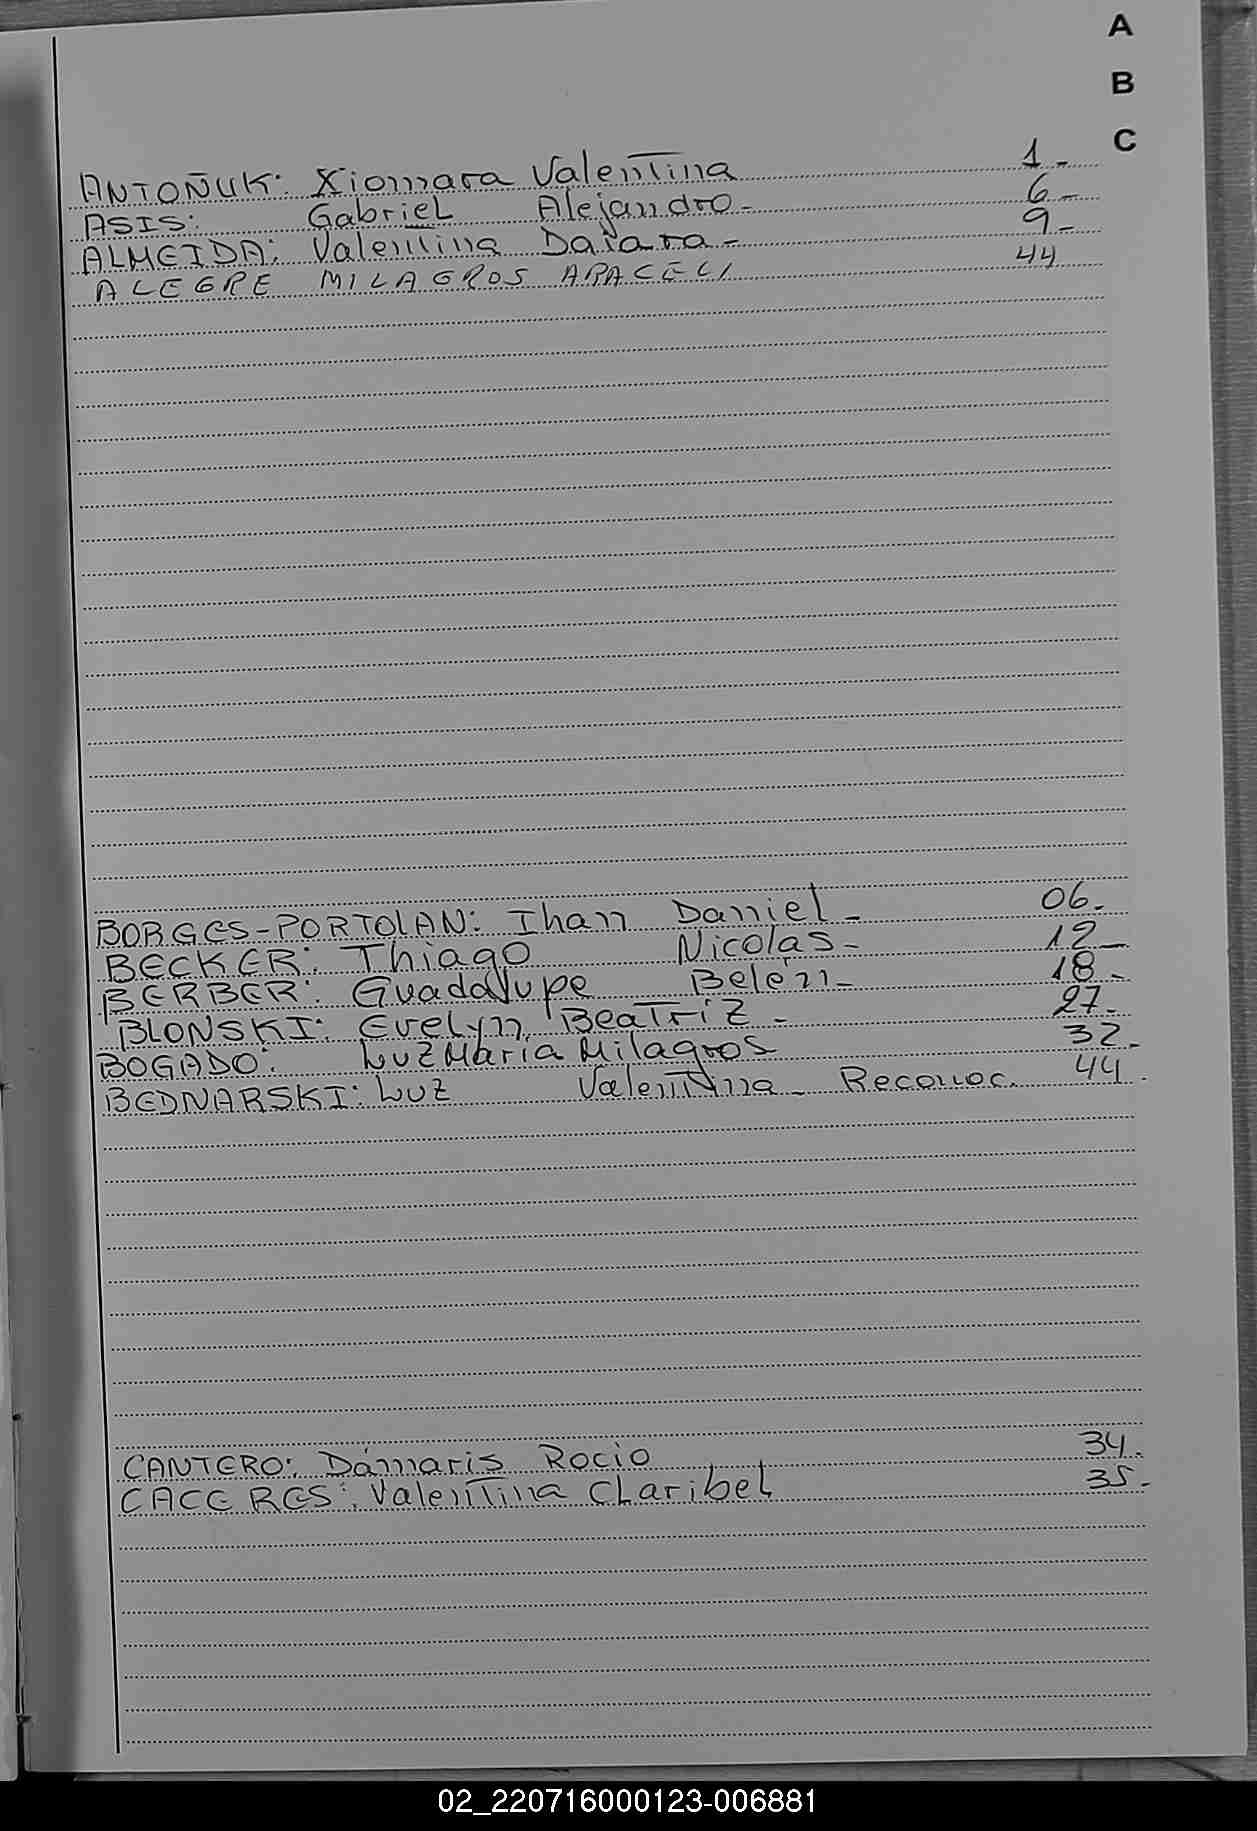 A
B
C
ANTOÑUK: Xiomara Valentina 1-
ASIS: Gabriel Alejandro- 6-
ALMEIDA: Valentina Daiara- 9-
ALEGRE MILAGROS ARACELI 44
BORGES-PORTOLAN: Ihan Daniel- 06.
BECKER: Thiago Nicolás- 12-
BERBER: Guadalupe Belén- 18-
BLONSKI: Evelyn Beatriz- 27-
BOGADO: Luz María Milagros 32-
BEDNARSKI: Luz Valentina- Reconoc. 44.
CANTERO: Dámaris Rocio 34.
CACERES: Valentina Claribel 35-
02_220716000123-006881